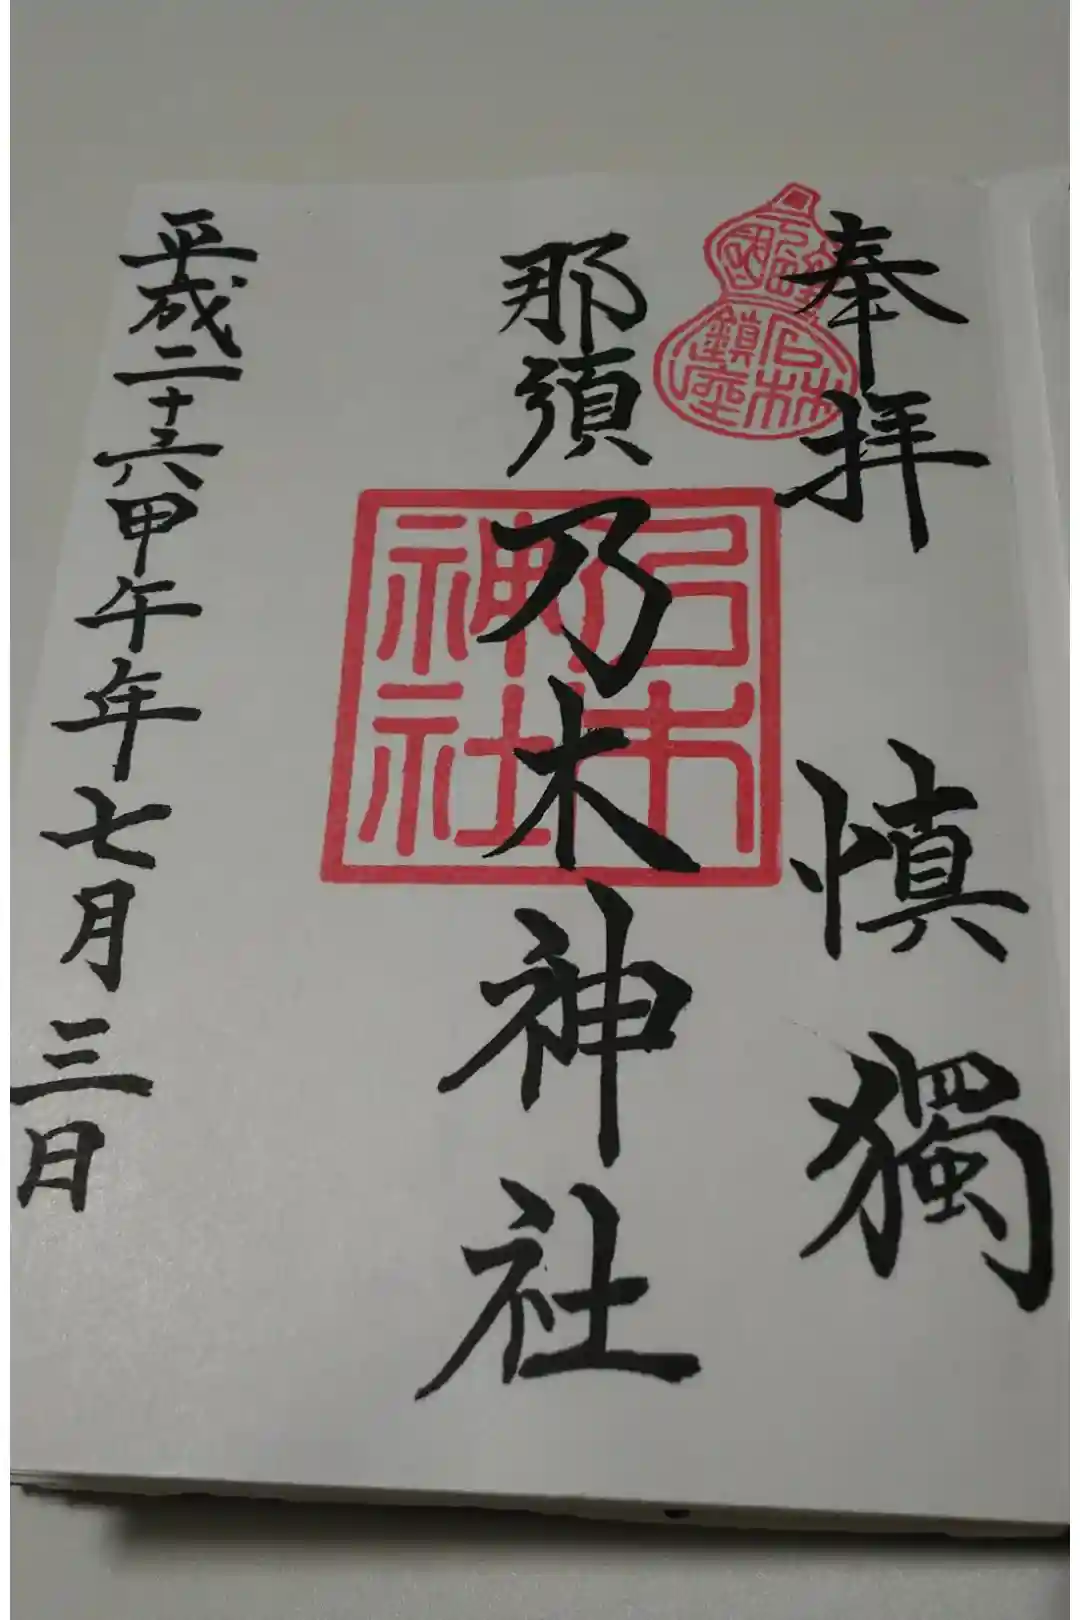 奉拝 慎獨
石林
鎮座
那須乃木神社
乃木
神社
平成二十六甲午年七月三日